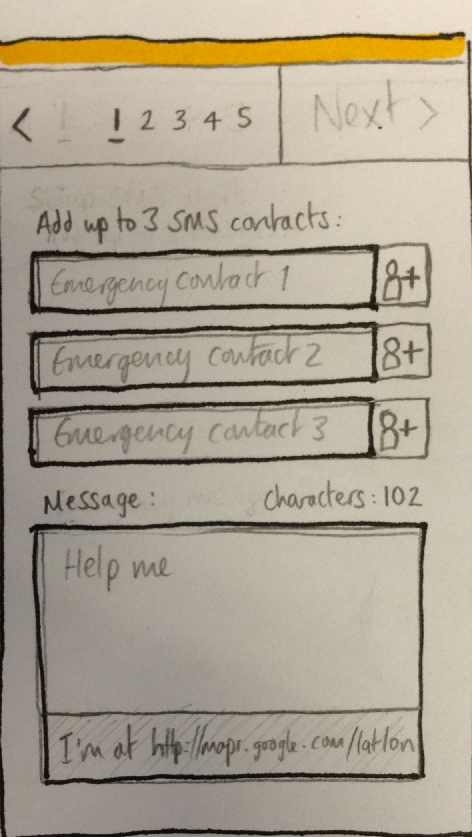 < 1 2 3 4 5 Next >
Add up to 3 SMS contacts:
Emergency contact 1 8+
Emergency contact 2 8+
Emergency contact 3 8+
Message: Characters: 102
Help me
I'm at http://mapr.google.com/latlon